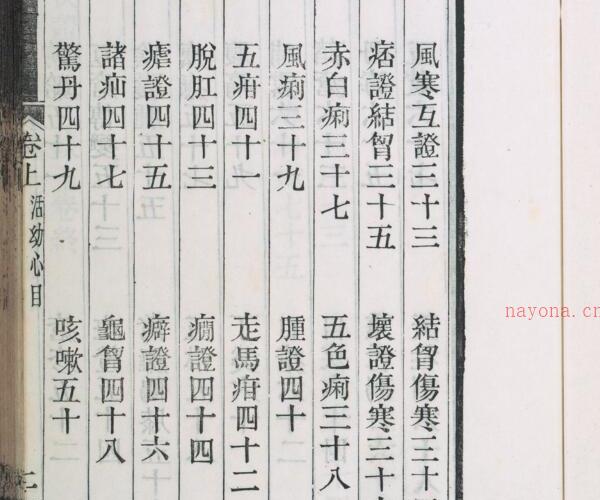 風寒互證三十三 結胷傷寒三十
痞證結胷三十五 壞證傷寒三十
赤白痢三十七 五色痢三十八
風痢三十九 腫證四十
五疳四十一 走馬疳四十二
脫肛四十三 癎證四十四
瘧證四十五 癖證四十六
諸疝四十七 龜胷四十八
驚丹四十九 咳嗽五十
卷上 活幼心目
nayona.cn